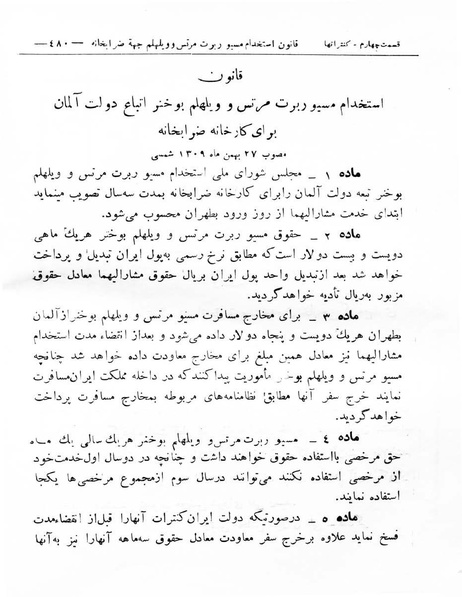 قسمت چهارم - کنتراتها قانون استخدام مسیو ربرت مرتس و ویلهلم جهة ضرابخانه —٤٨٠—
قانون
استخدام مسیو ربرت مرتس و ویلهلم بوخنر اتباع دولت آلمان
برای کارخانه ضرابخانه
مصوب ٢٧ بهمن ماه ١٣٠٩ شمسی
ماده ١ ـ مجلس شورای ملی استخدام مسیو ربرت مرتس و ویلهلم
بوخنر تبعه دولت آلمان را برای کارخانه ضرابخانه بمدت سه سال تصویب مینماید
ابتدای خدمت مشارالیهما از روز ورود بطهران محسوب می‌شود.
ماده ٢ ـ حقوق مسیو ربرت مرتس و ویلهلم بوخنر هریك ماهی
دویست و بیست دولار است که مطابق نرخ رسمی به‌پول ایران تبدیل و پرداخت
خواهد شد بعد از تبدیل واحد پول ایران بریال حقوق مشارالیهما معادل حقوق
مزبور به‌ریال تأدیه خواهد گردید.
ماده ٣ ـ برای مخارج مسافرت مسیو مرتس و ویلهلم بوخنر از آلمان
بطهران هریك دویست و پنجاه دولار داده می‌شود و بعد از انقضاء مدت استخدام
مشارالیهما نیز معادل همین مبلغ برای مخارج معاودت داده خواهد شد چنانچه
مسیو مرتس و ویلهلم بوخنر مأموریت پیدا کنند که در داخله مملکت ایران مسافرت
نمایند خرج سفر آنها مطابق نظامنامه‌های مربوطه بمخارج مسافرت پرداخت
خواهد گردید.
ماده ٤ ـ مسیو ربرت مرتس و ویلهلم بوخنر هر یك سالی یك ماه
حق مرخصی با استفاده حقوق خواهند داشت و چنانچه در دو سال اول خدمت خود
از مرخصی استفاده نکنند می‌توانند در سال سوم از مجموع مرخصی‌ها یکجا
استفاده نمایند.
ماده ٥ ـ در صورتیکه دولت ایران کنترات آنها را قبل از انقضاء مدت
فسخ نماید علاوه بر خرج سفر معاودت معادل حقوق سه‌ماهه آنها را نیز به‌آنها